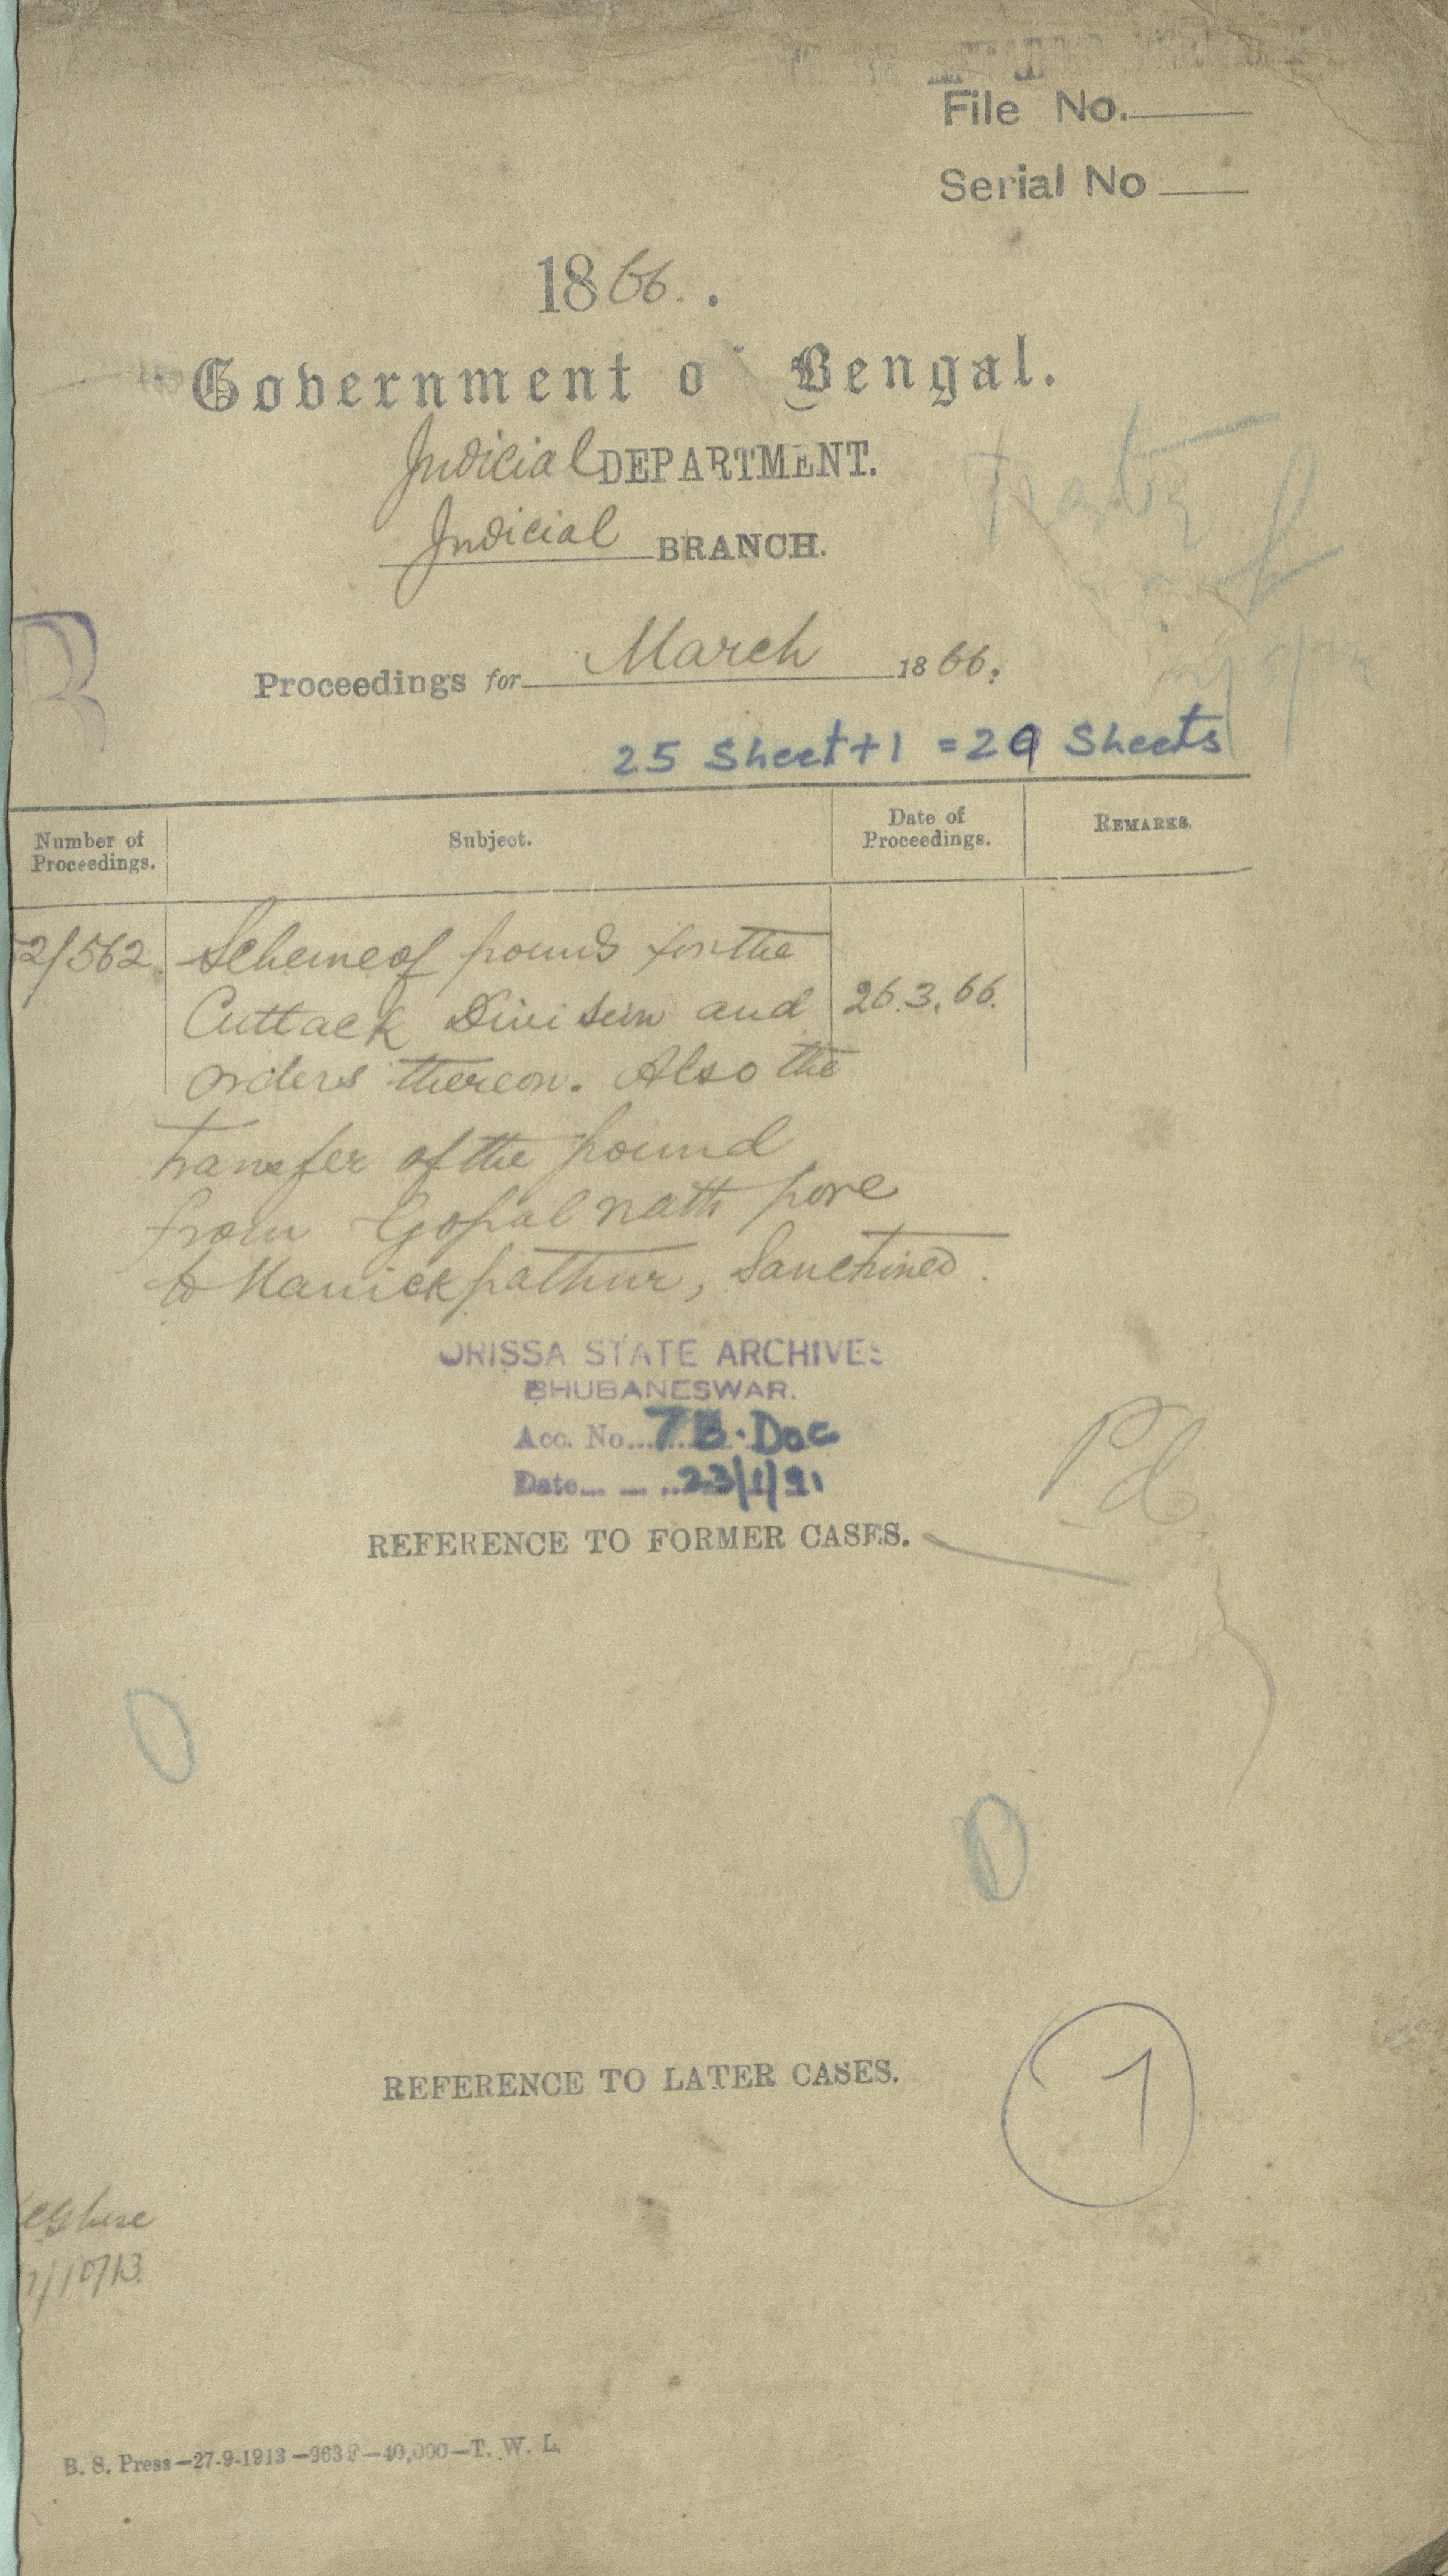 File No.
Serial No
1866.
Government o Bengal.
Judicial DEPARTMENT.
Judicial BRANCH.
Proceedings for March 1866.
25 Sheet+1 = 29 Sheets
Number of Proceedings.
Subject.
Date of Proceedings.
REMARKS.
2/562.
Scheme of pounds for the
Cuttack Division and
26.3.66.
orders thereon. Also the
transfer of the pound
from Gopal nath pore
to Manickpathur, Sanctioned.
ORISSA STATE ARCHIVES
BHUBANESWAR.
Acc. No. 7B. Doc
Date 23/1/91
REFERENCE TO FORMER CASES.
REFERENCE TO LATER CASES.
1
/10/13.
B. S. Press—27-9-1913—963F—40,000—T. W. L.